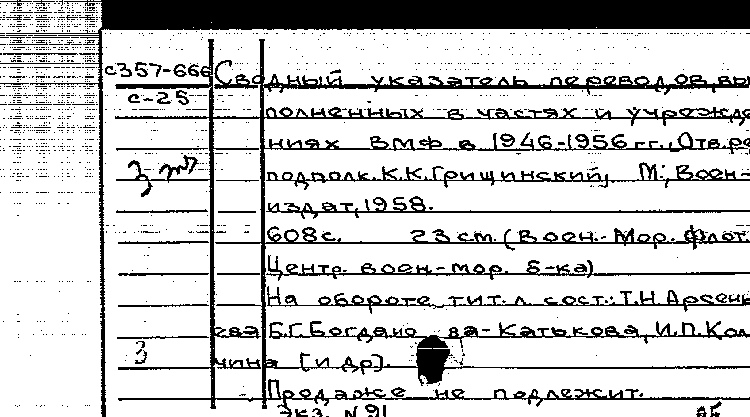 с357-666 Сводный указатель переводов, вы
с-25
полненных в частях и учрежде
ниях ВМФ в 1946-1956 гг., Отв. ре
3
подполк. К.К. Грищинский, М., Воен-
издат, 1958.
608с. 23 см. (Воен.-Мор. Флот.
Центр. воен-мор. б-ка)
На обороте тит. л. сост.: Т.Н. Арсень
ева Б.Г. Богдано ва-Катькова, И.П. Кал
3
чина [и др].
Продаже не подлежит.
Экз. N 91